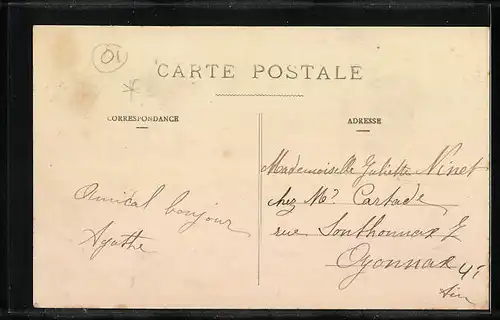 01
CARTE POSTALE
CORRESPONDANCE
ADRESSE
Amical bonjour
Agathe
Mademoiselle Juliette Ninet
chez Mr Cartade
rue Sonthonnax
Oyonnax
Ain